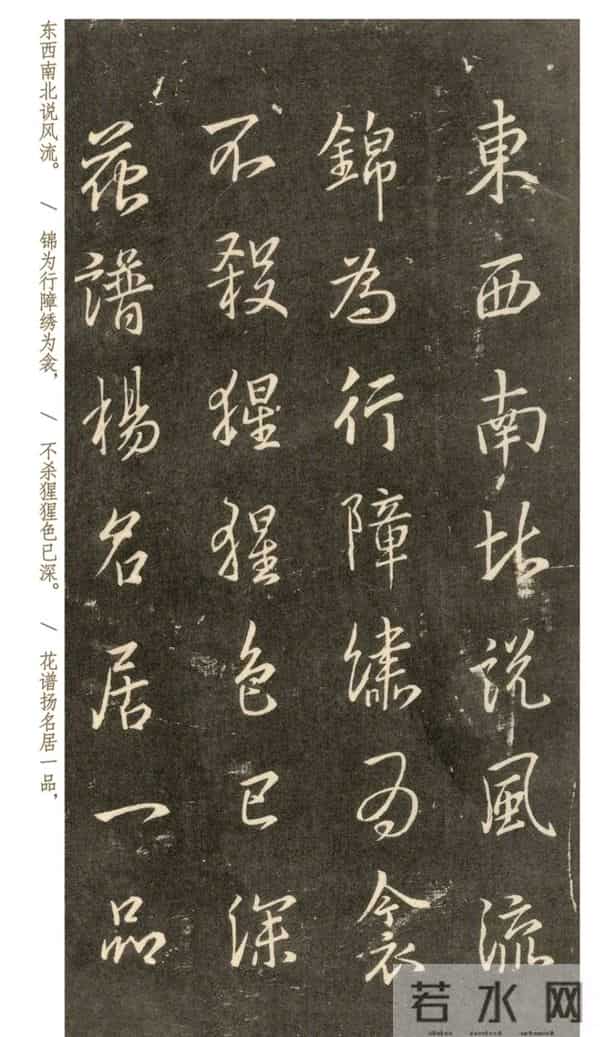 東西南北説風流
錦為行障繡為衾
不殺猩猩色已深
花譜楊名居一品
东西南北说风流。 / 锦为行障绣为衾， / 不杀猩猩色已深。 / 花谱扬名居一品，
若水网